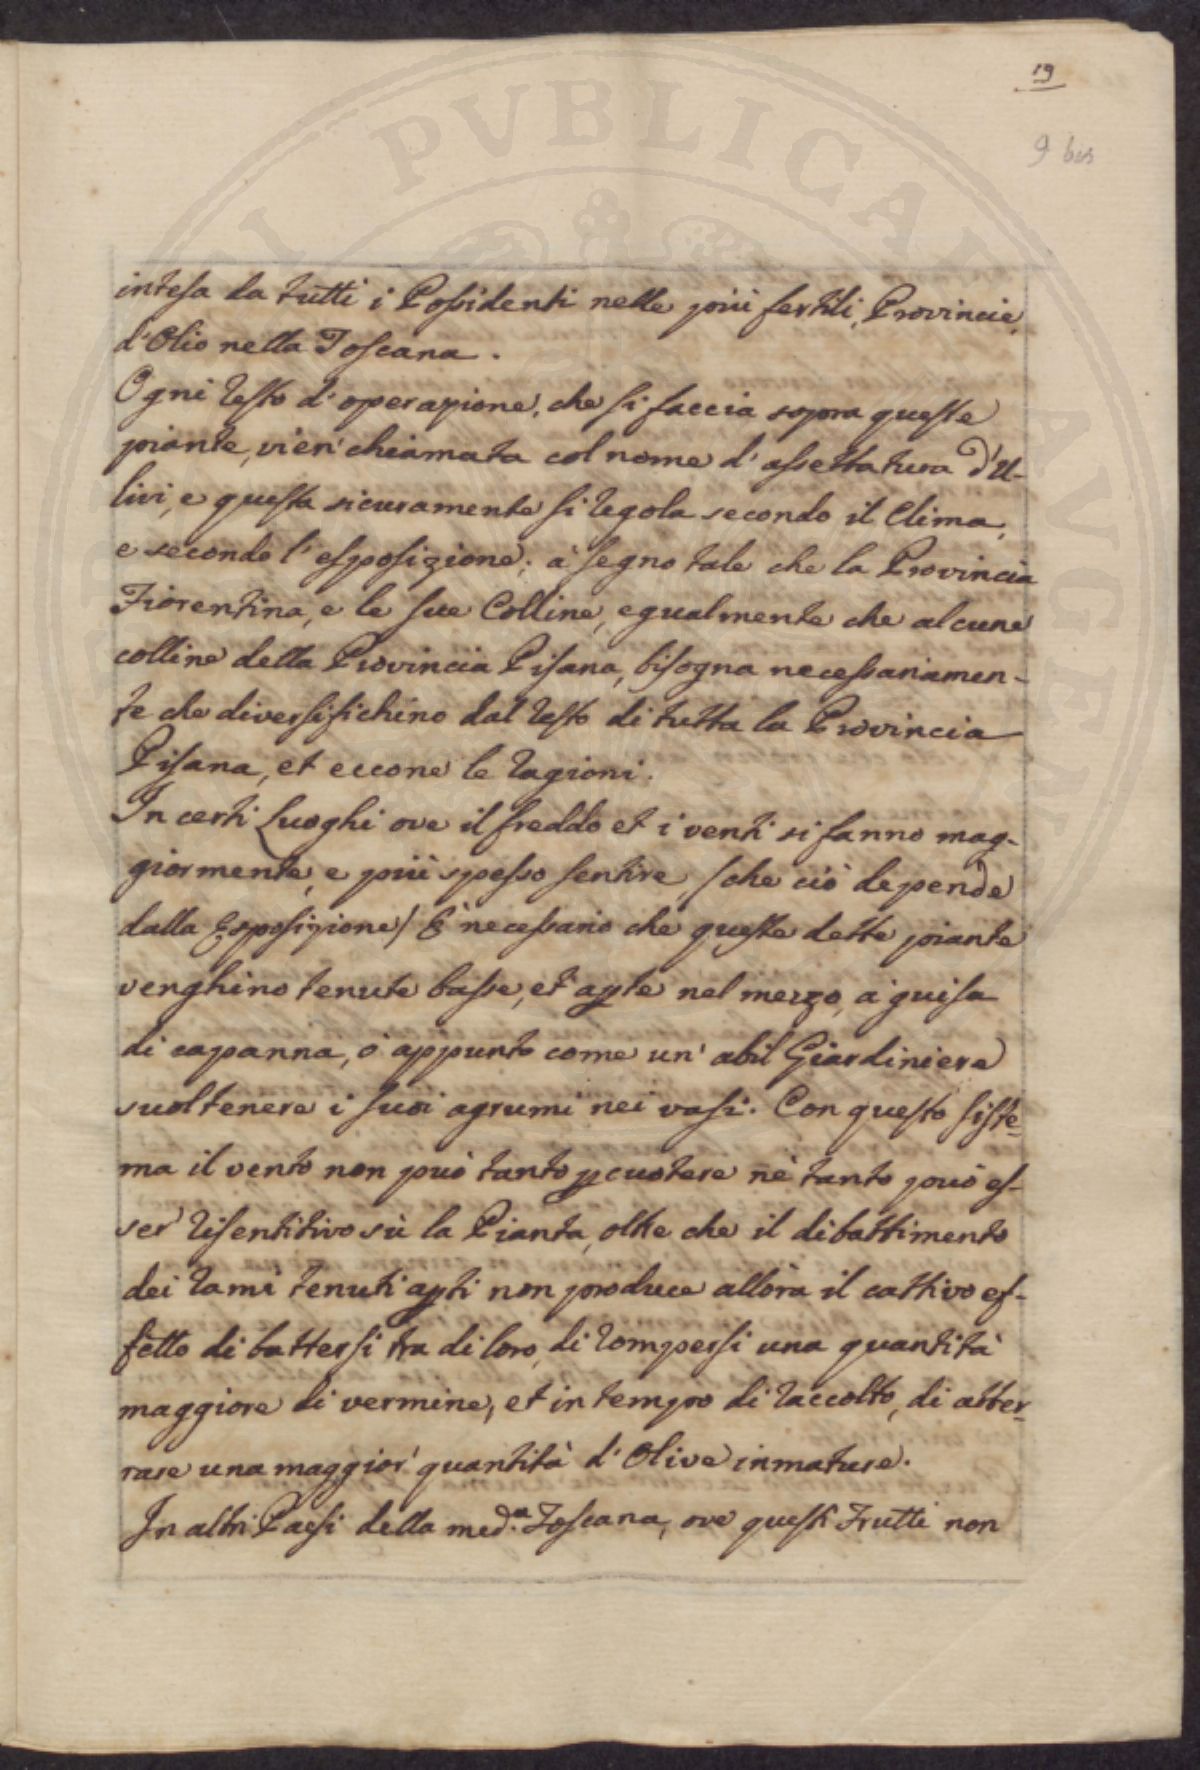 19
9 bis
intesa da tutti i Possidenti nelle più fertili Provincie
d'Olio nella Toscana.
Ogni resto d'operazione, che si faccia sopra queste
piante, vien' chiamata col nome d'assettatura d'U-
livi, e questa sicuramente si regola secondo il Clima,
e secondo l'esposizione; à segno tale che la Provincia
Fiorentina, e le sue Colline, egualmente che alcune
colline della Provincia Pisana, bisogna necessariamen-
te che diversifichino dal resto di tutta la Provincia
Pisana, et eccone le ragioni.
In certi Luoghi ove il freddo et i venti si fanno mag-
giormente, e più spesso sentire (che ciò depende
dalla Esposizione) È necessario che queste dette piante
venghino tenute basse, et apte nel mezzo, à guisa
di capanna, ò appunto come un' abil Giardiniere
suol tenere i suoi agrumi nei vasi. Con questo siste-
ma il vento non può tanto pcuotere nè tanto può es-
ser' risentitivo sù la Pianta, oltre che il dibattimento
dei rami tenuti apti non produce allora il cattivo ef-
fetto di battersi tra di loro, di rompersi una quantità
maggiore di vermine, et in tempo di raccolto, di atter-
rare una maggior' quantità d'Olive inmature.
In altri Paesi della med.ª Toscana, ove questi Frutti non